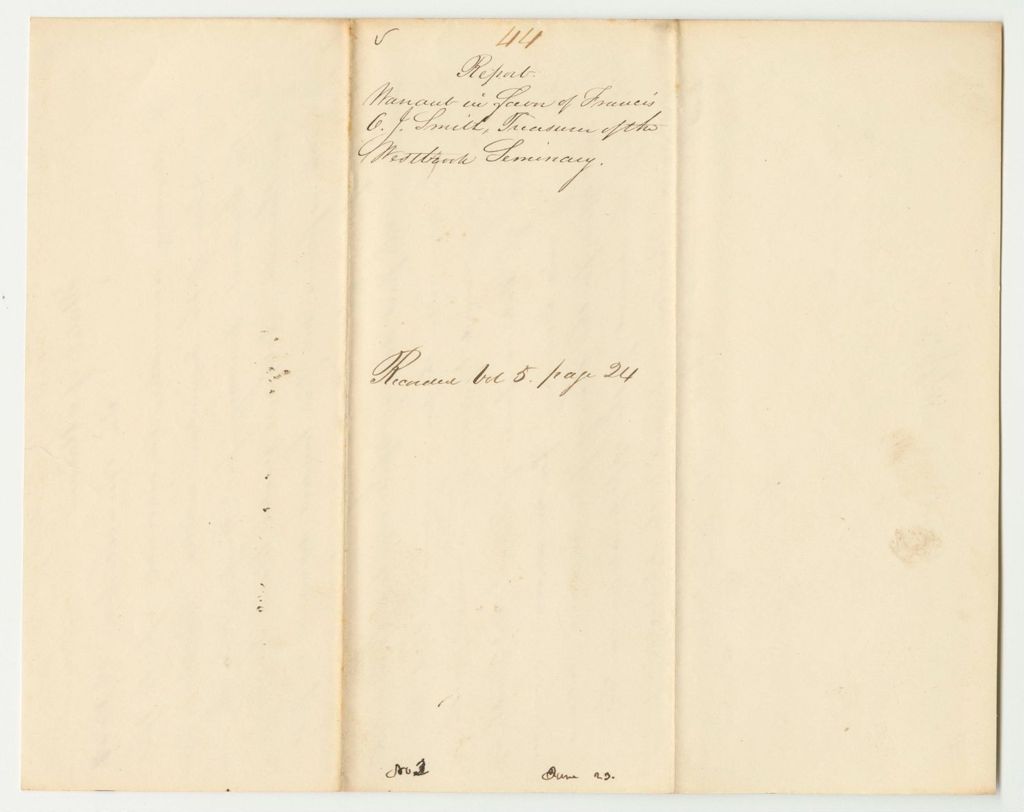 44
Report.
Warrant in favor of Francis
O. J. Smith, Treasurer of the
Westbrook Seminary.
Recorded Vol 5. page 24
No 1
June 23.